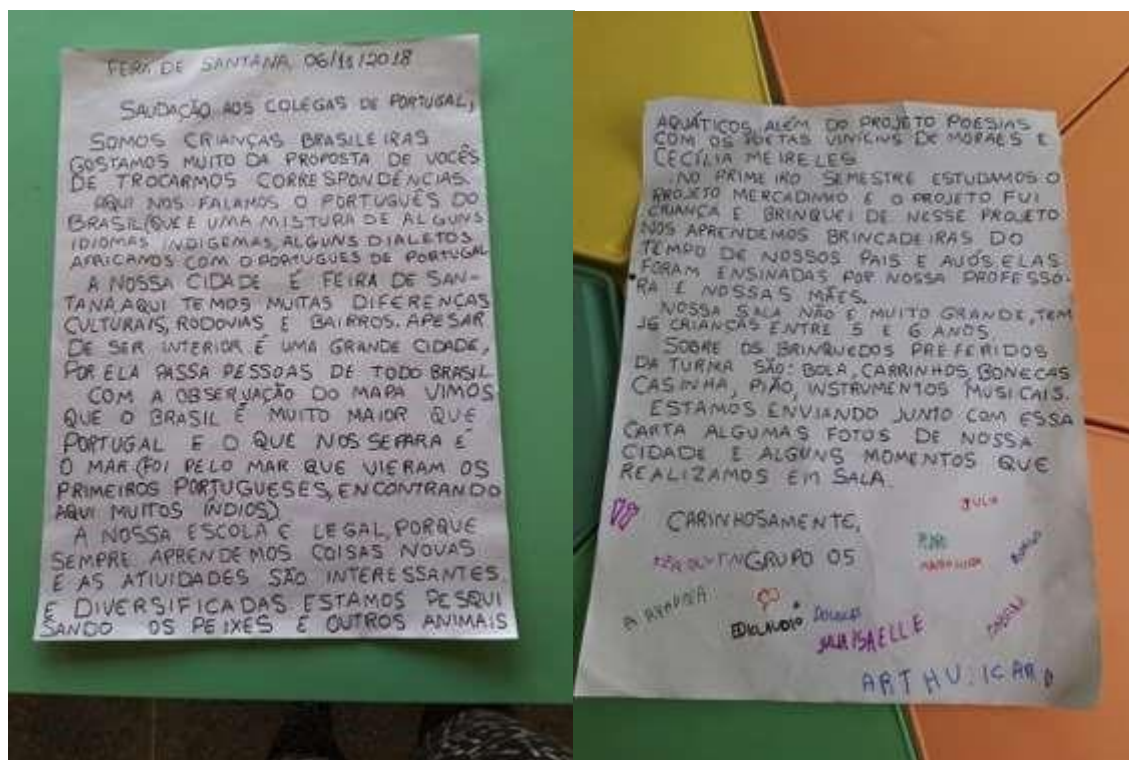 FEIRA DE SANTANA, 06/11/2018
SAUDAÇÃO AOS COLEGAS DE PORTUGAL,
SOMOS CRIANÇAS BRASILEIRAS
GOSTAMOS MUITO DA PROPOSTA DE VOCÊS
DE TROCARMOS CORRESPONDÊNCIAS.
AQUI NOS FALAMOS O PORTUGUÊS DO
BRASIL (QUE E UMA MISTURA DE ALGUNS
IDIOMAS INDIGEMAS, ALGUNS DIALETOS
AFRICANOS COM O PORTUGUES DE PORTUGAL
A NOSSA CIDADE É FEIRA DE SAN-
TANA, AQUI TEMOS MUITAS DIFERENÇAS
CULTURAIS, RODOVIAS E BAIRROS. APESAR
DE SER INTERIOR É UMA GRANDE CIDADE,
POR ELA PASSA PESSOAS DE TODO BRASIL
COM A OBSERVAÇÃO DO MAPA VIMOS
QUE O BRASIL É MUITO MAIOR QUE
PORTUGAL E O QUE NOS SEPARA É
O MAR (FOI PELO MAR QUE VIERAM OS
PRIMEIROS PORTUGUESES, ENCONTRANDO
AQUI MUITOS ÍNDIOS).
A NOSSA ESCOLA É LEGAL, PORQUE
SEMPRE APRENDEMOS COISAS NOVAS
E AS ATIVIDADES SÃO INTERESSANTES
E DIVERSIFICADAS ESTAMOS PESQUI
SANDO OS PEIXES E OUTROS ANIMAIS
AQUÁTICOS, ALÉM DO PROJETO POESIAS
COM OS POETAS VINÍCIUS DE MORAES E
CECÍLIA MEIRELES
NO PRIMEIRO SEMESTRE ESTUDAMOS O
PROJETO MERCADINHO E O PROJETO FUI
CRIANÇA E BRINQUEI DE NESSE PROJETO
NOS APRENDEMOS BRINCADEIRAS DO
TEMPO DE NOSSOS PAIS E AVÓS, ELAS
FORAM ENSINADAS POR NOSSA PROFESSO-
RA E NOSSAS MÃES.
NOSSA SALA NÃO É MUITO GRANDE, TEM
16 CRIANÇAS ENTRE 5 E 6 ANOS.
SOBRE OS BRINQUEDOS PREFERIDOS
DA TURMA SÃO: BOLA, CARRINHOS BONECAS
CASINHA, PIÃO, INSTRUMENTOS MUSICAIS.
ESTAMOS ENVIANDO JUNTO COM ESSA
CARTA ALGUMAS FOTOS DE NOSSA
CIDADE E ALGUNS MOMENTOS QUE
REALIZAMOS EM SALA.
JULIO
CARINHOSAMENTE,
GRUPO 05
EDICLAUDIO
ISAELLE
ARTHU